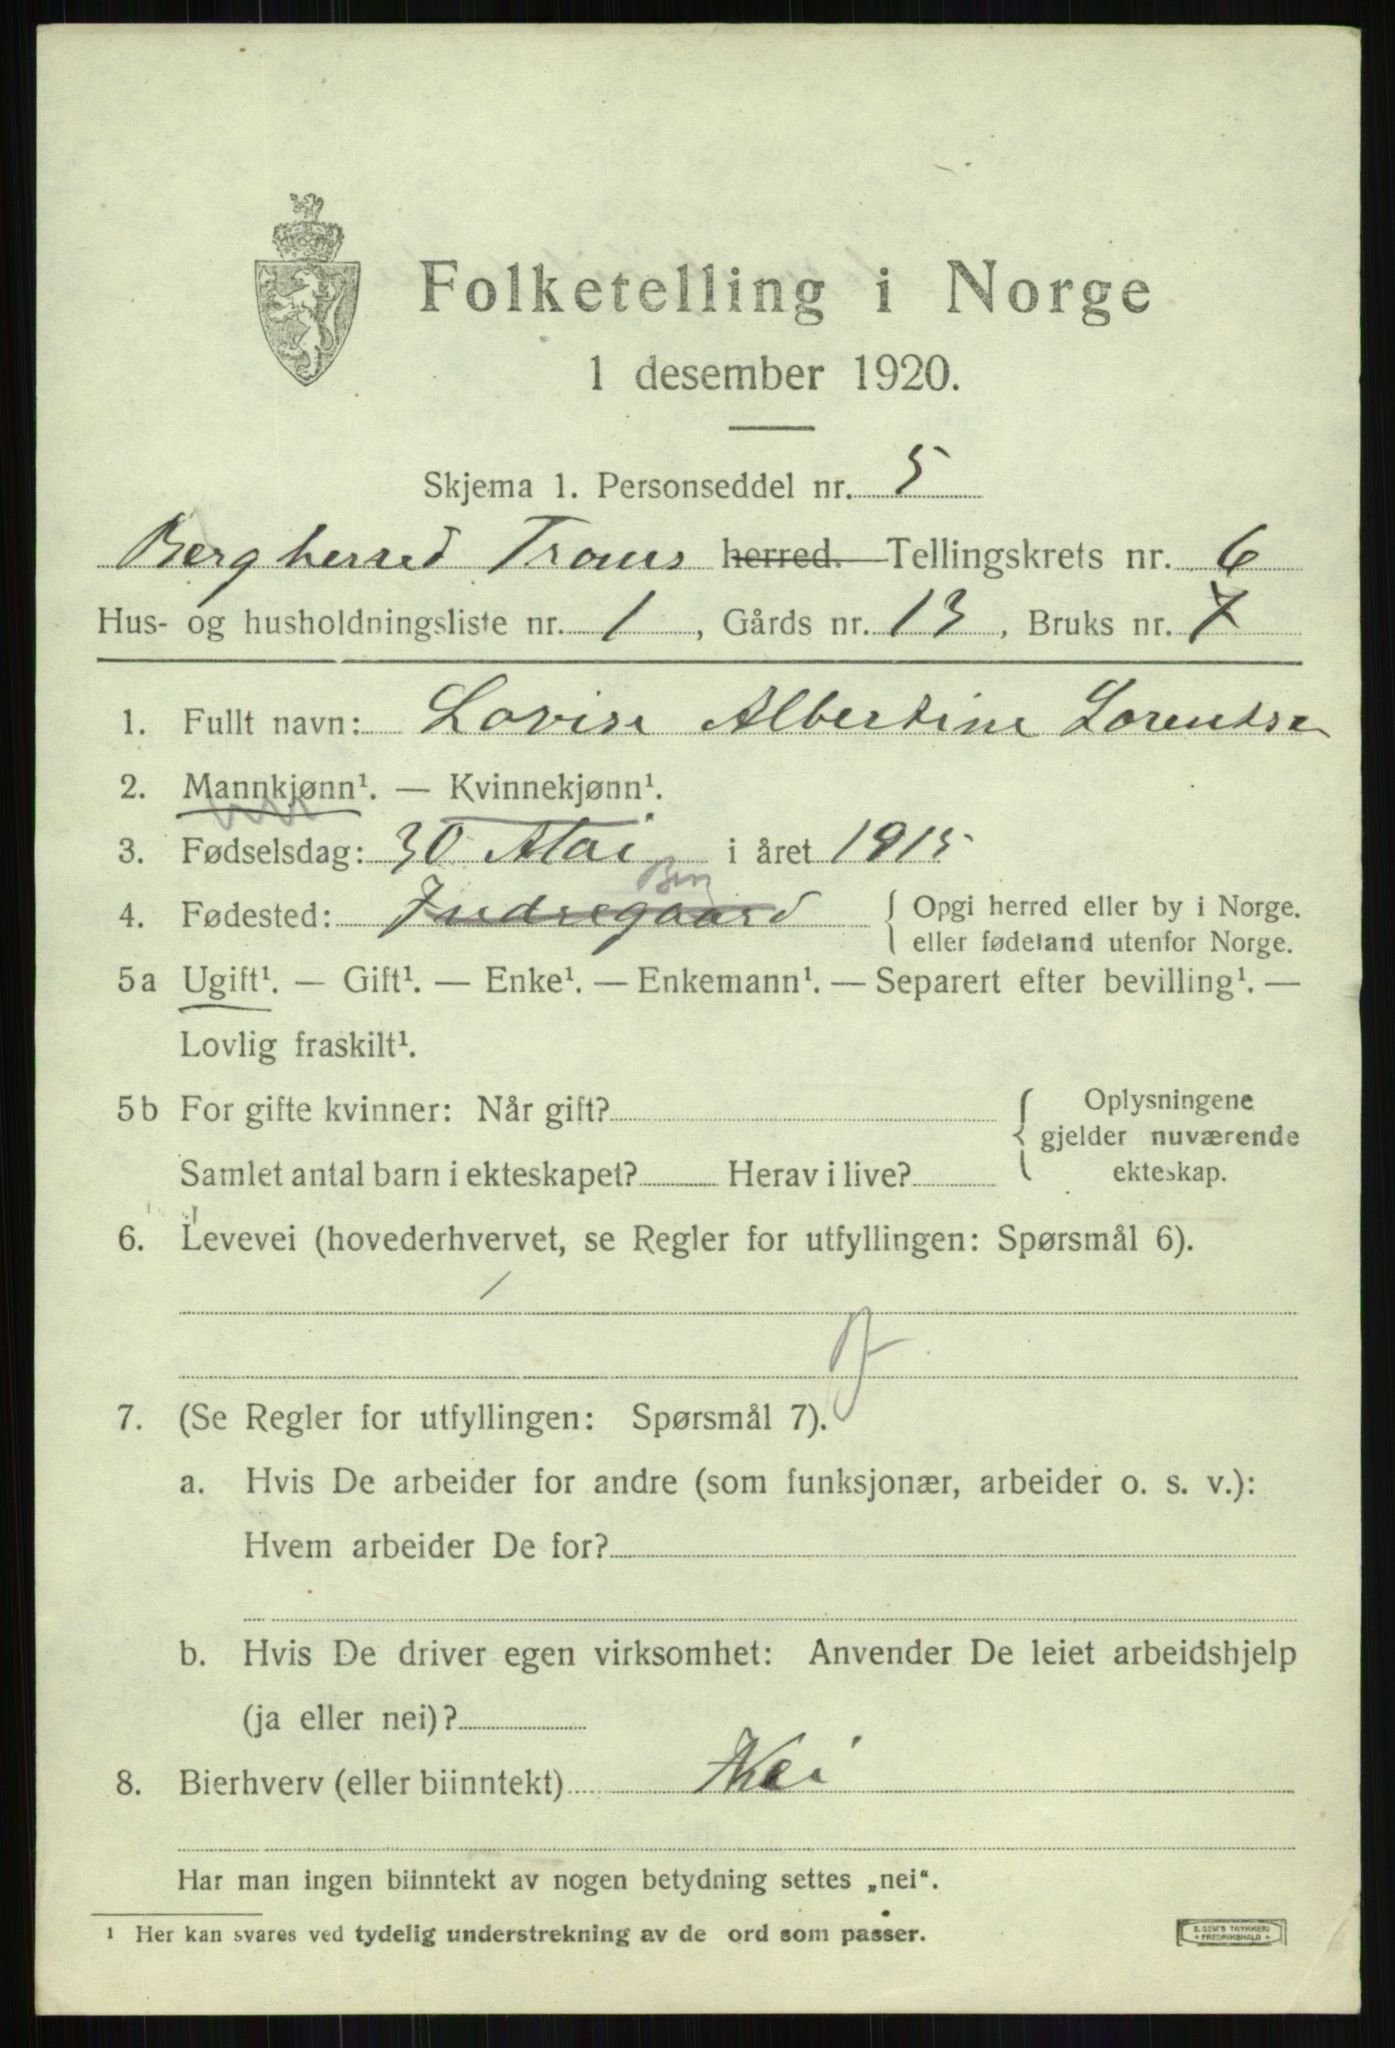 Folketelling i Norge
1 desember 1920.
Skjema 1. Personseddel nr. 5
Bergherred Troms herred. Tellingskrets nr. 6
Hus- og husholdningsliste nr. 1, Gårds nr. 13, Bruks nr. 7
1. Fullt navn: Lovise Albertine Lorentse
2. Mannkjønn¹. — Kvinnekjønn¹.
3. Fødselsdag: 30 Mai i året 1915
Berg
4. Fødested: Indregaard { Opgi herred eller by i Norge.
eller fødeland utenfor Norge.
5a Ugift¹. — Gift¹. — Enke¹. — Enkemann¹. — Separert efter bevilling¹. —
Lovlig fraskilt¹.
5b For gifte kvinner: Når gift? { Oplysningene
gjelder nuværende
Samlet antal barn i ekteskapet? Herav i live? ekteskap.
6. Levevei (hovederhvervet, se Regler for utfyllingen: Spørsmål 6).
7. (Se Regler for utfyllingen: Spørsmål 7).
a. Hvis De arbeider for andre (som funksjonær, arbeider o. s. v.):
Hvem arbeider De for?
b. Hvis De driver egen virksomhet: Anvender De leiet arbeidshjelp
(ja eller nei)?
8. Bierhverv (eller biinntekt) Nei
Har man ingen biinntekt av nogen betydning settes „nei“.
¹ Her kan svares ved tydelig understrekning av de ord som passer.
E. SEM'S TRYKKERI
FREDRIKSHALD